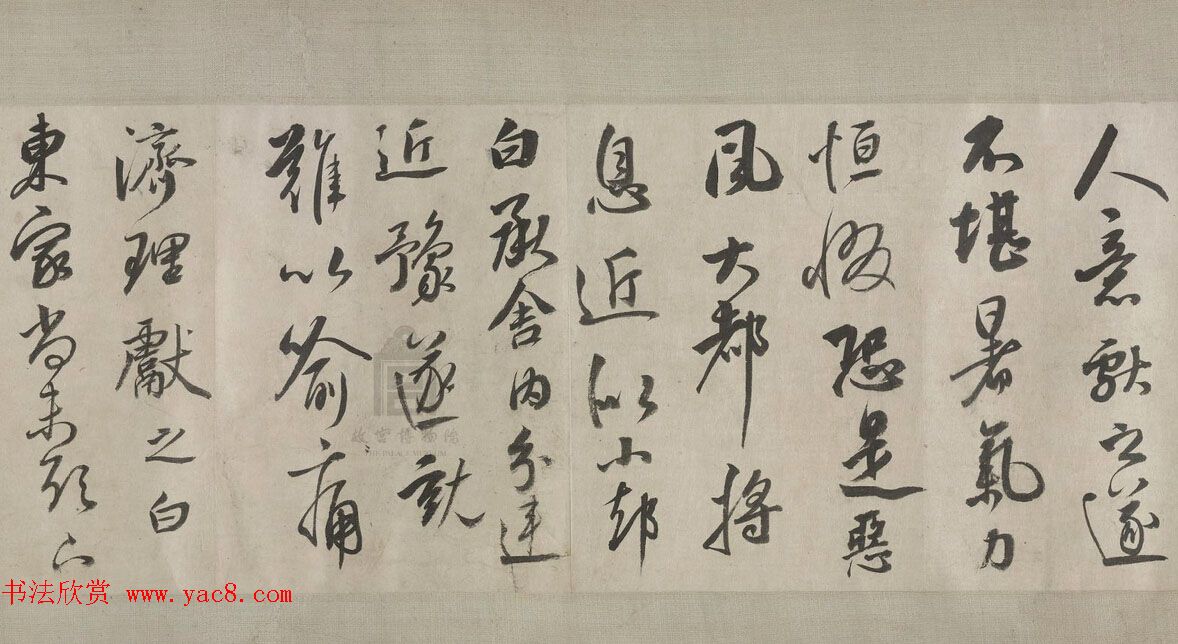 人意獻之遂
不堪暑氣力
恒惙恐是惡
風大都將
息近似小却
白承舍内分違
近豫遂就
難以喻痛
濟理獻之白
東家尚未
故宫博物院
THE PALACE MUSEUM
书法欣赏 www.yac8.com